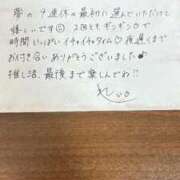 春の9連休の最初に選んでいただけて
嬉しいです☺ 2回ともギンギンで
時間いっぱいイチャイチャタイム♡夜遅くまで
お付き合いありがとうございました♪
推し活、最後まで楽しんでね!!